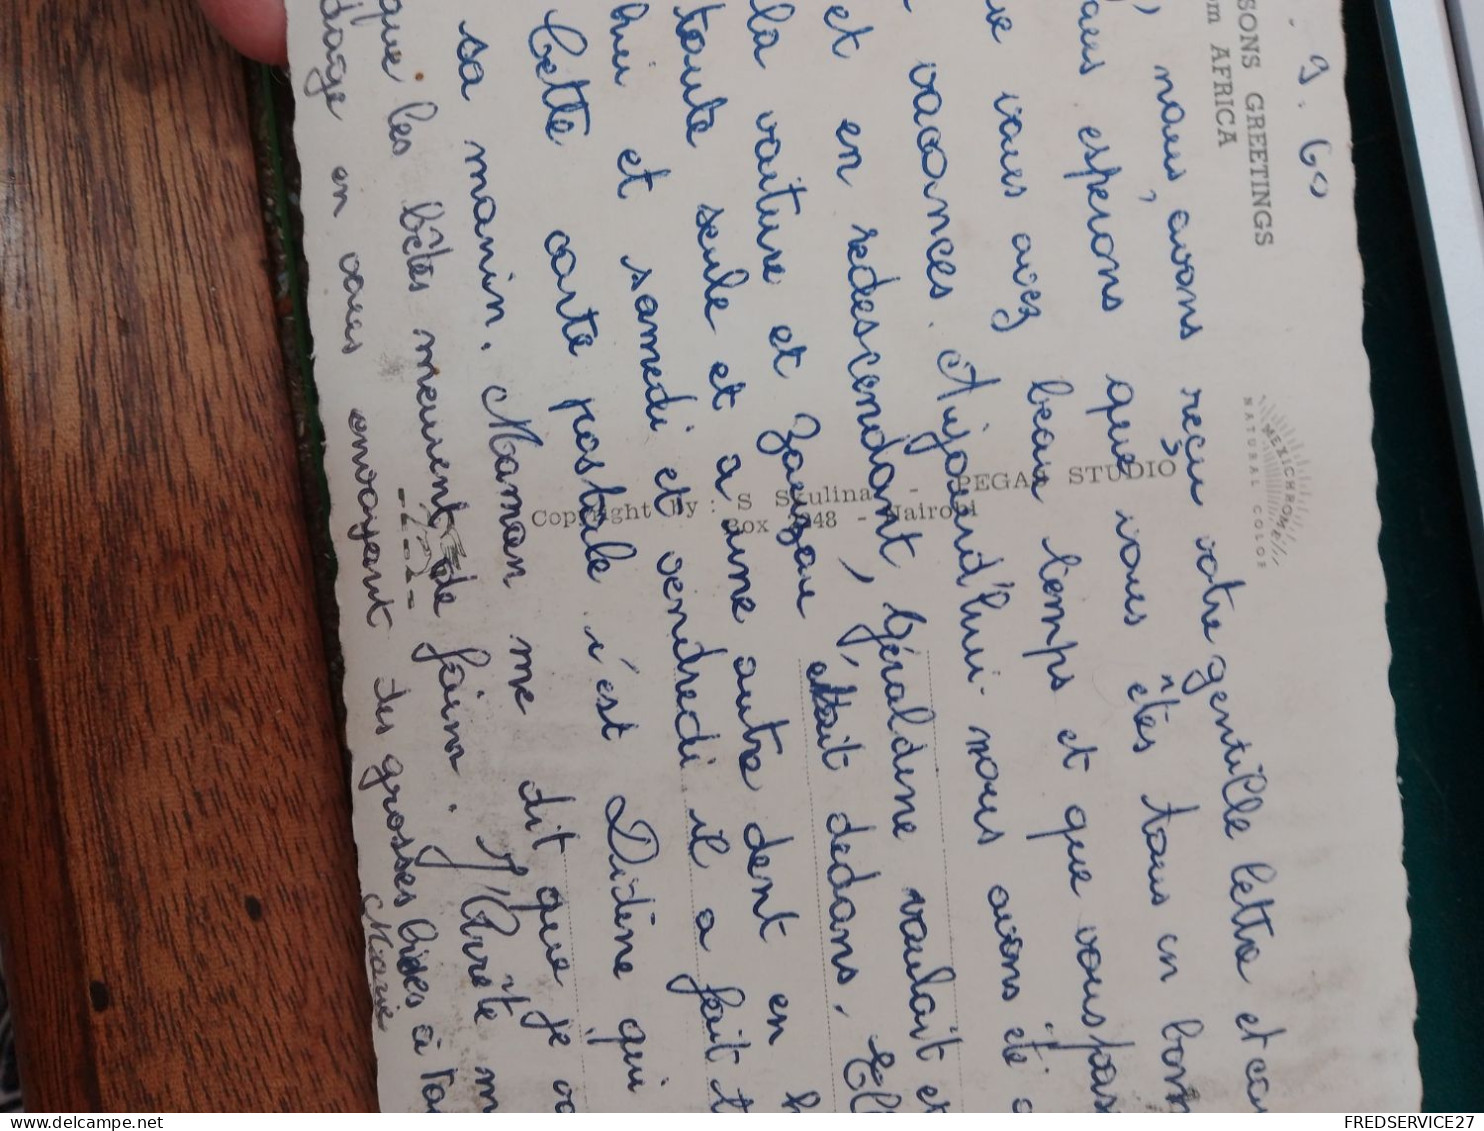 . 9. 60
SONS GREETINGS
om AFRICA
MEXICHROME
NATURAL COLOR
nous avons reçu votre gentille lettre et
espérons que vous êtes tous en bon
vous avez beau temps et que vous pas
vacances. Aujourd'hui nous avons été
et en redescendant, Géraldine voulait et
la voiture et Zouzou était dedans. Ell
toute seule et a une autre dent en
hui et samedi et vendredi il a fait t
Cette carte postale c'est Didine qui
sa main. Maman me dit que je
que les bêtes meurent de faim. J'arrête m
en vous envoyant des grosses bises à
Marie
PEGAS STUDIO
Copyright by: S Skulina -
Box 948 - Nairobi
FREDSERVICE27